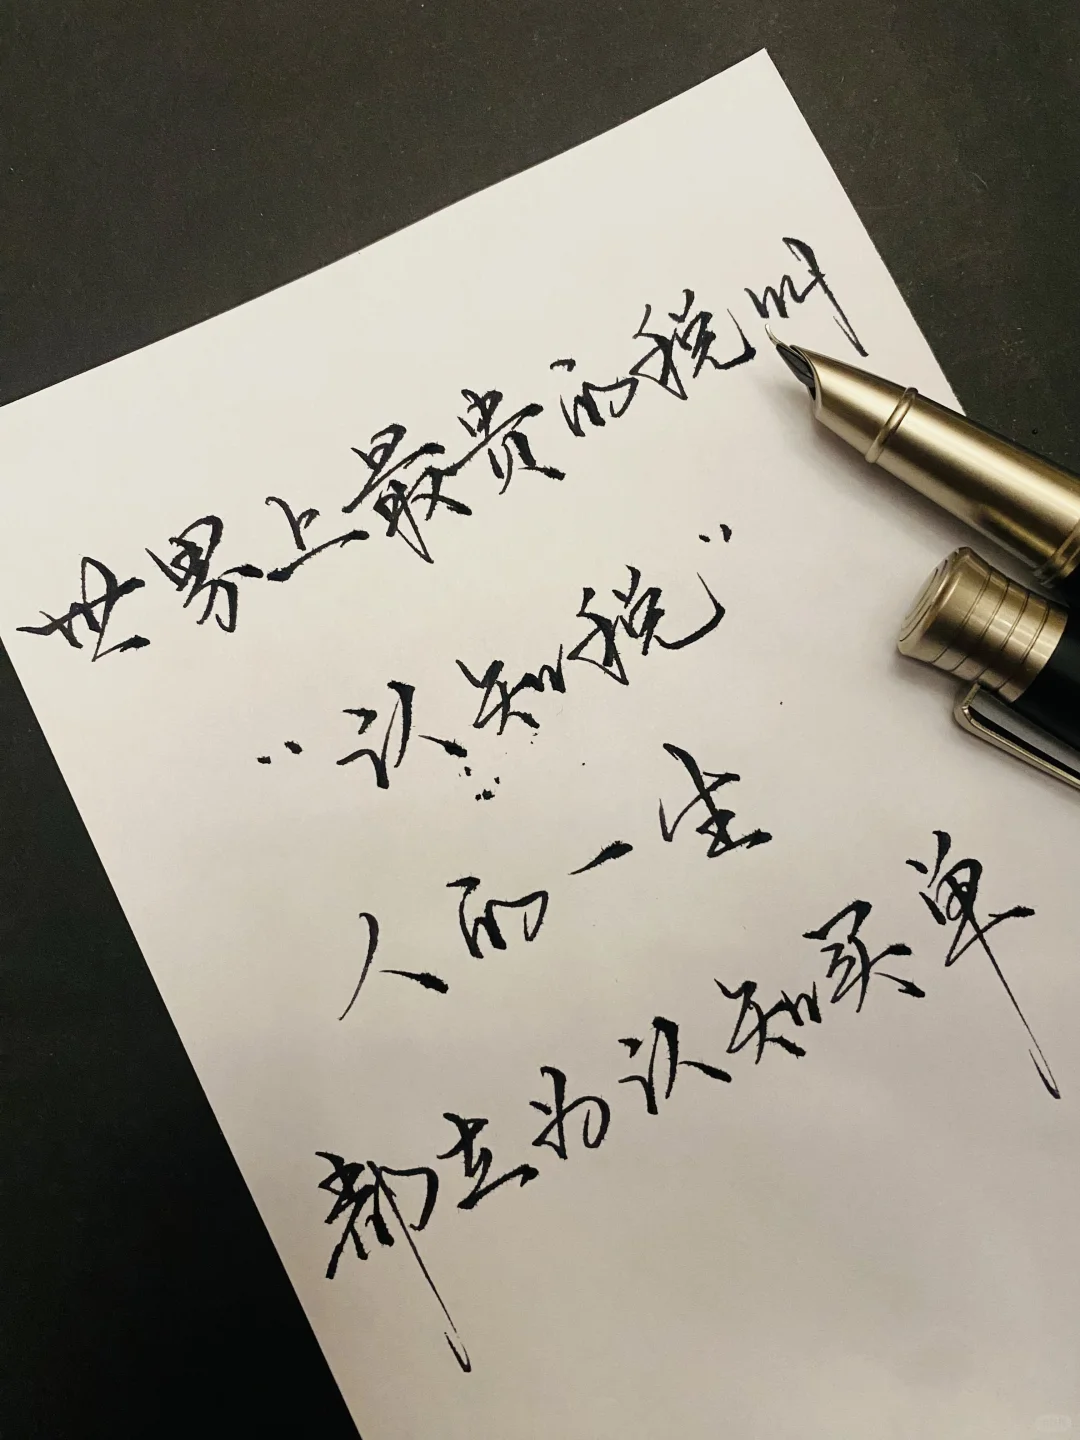 世界上最贵的税叫
“认知税”
人的一生
都在为认知买单